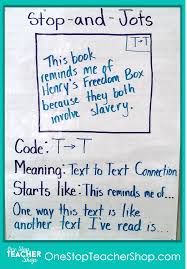 Stop-and-Jots
T-T
This book
reminds me of
Henry's Freedom Box
because they both
involve slavery.
Code: T→T
Meaning: Text to Text Connection
Starts like: This reminds me of...
One way this text is like
another text I've read is...
One Stop
TEACHER
Shop
OneStopTeacherShop.com